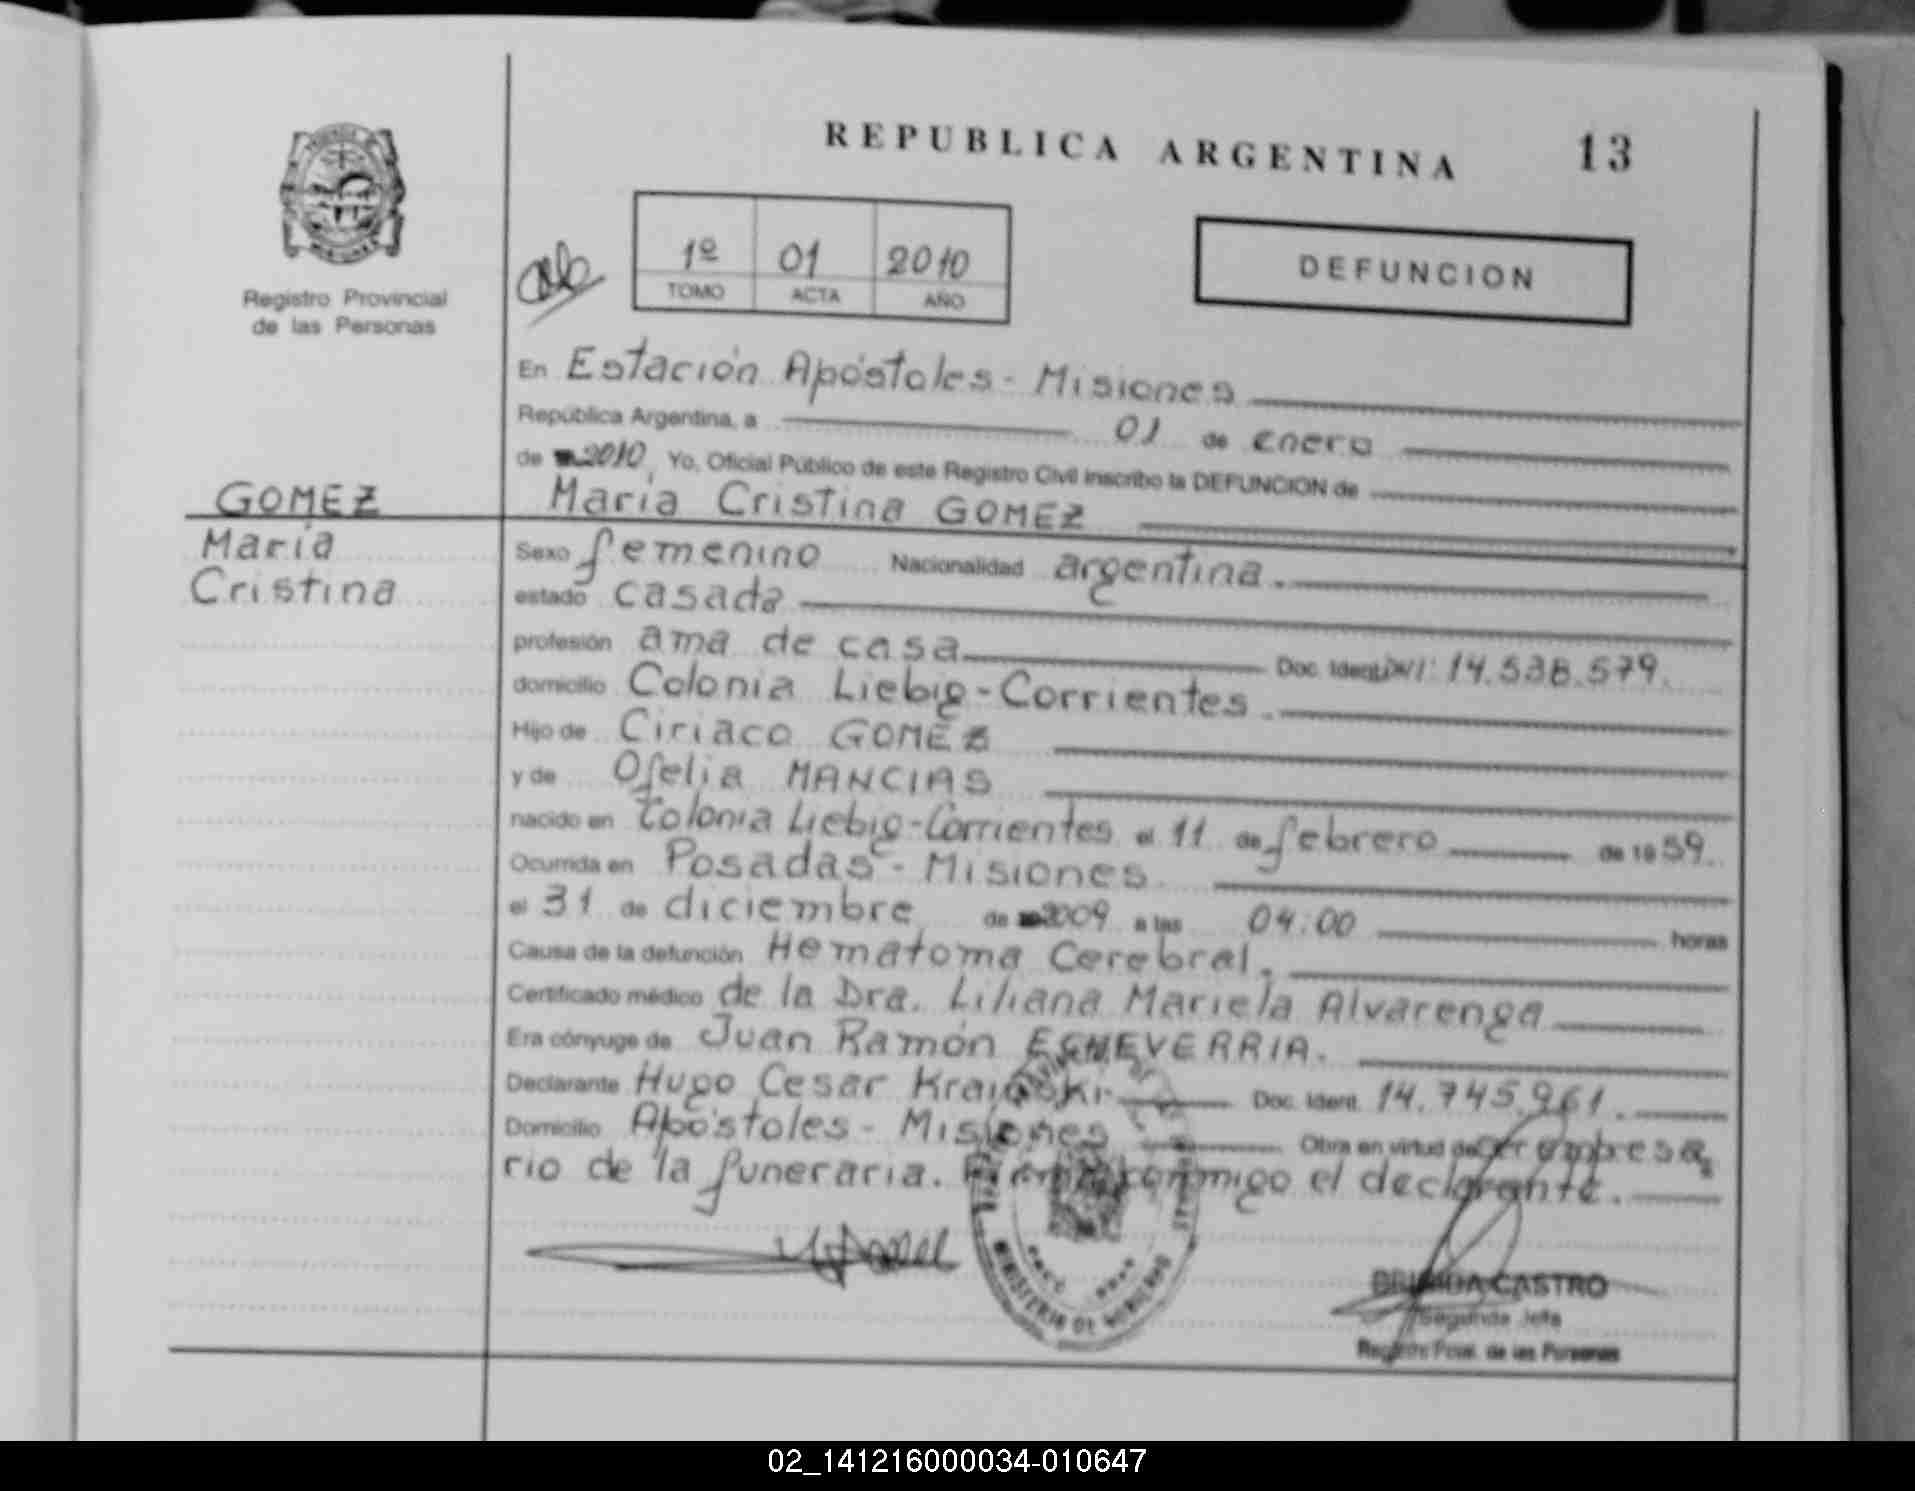 REPUBLICA ARGENTINA 13
Registro Provincial
de las Personas
1º 01 2010
TOMO ACTA AÑO
DEFUNCION
En Estación Apóstoles - Misiones
República Argentina, a 01 de enero
de 2010, Yo, Oficial Público de este Registro Civil inscribo la DEFUNCION de
GOMEZ
María
Cristina
María Cristina GOMEZ
Sexo femenino Nacionalidad argentina.
estado casada
profesión ama de casa Doc. Ident. DNI: 14.538.579.
domicilio Colonia Liebig - Corrientes.
Hijo de Ciriaco GOMEZ
y de Ofelia MANCIAS
nacido en Colonia Liebig - Corrientes el 11 de febrero de 1959.
Ocurrida en Posadas - Misiones.
el 31 de diciembre de 2009 a las 04:00 horas
Causa de la defunción Hematoma Cerebral.
Certificado médico de la Dra. Liliana Mariela Alvarenga
Era cónyuge de Juan Ramón ECHEVERRIA.
Declarante Hugo Cesar Doc. Ident. 14.745.961.
Domicilio Apóstoles - Misiones Obra en virtud de ser empresa
rio de la funeraria. Firma conmigo el declarante.
MINISTERIO DE GOBIERNO
BRIGIDA CASTRO
Segunda Jefa
Registro Pcial. de las Personas
02_141216000034-010647